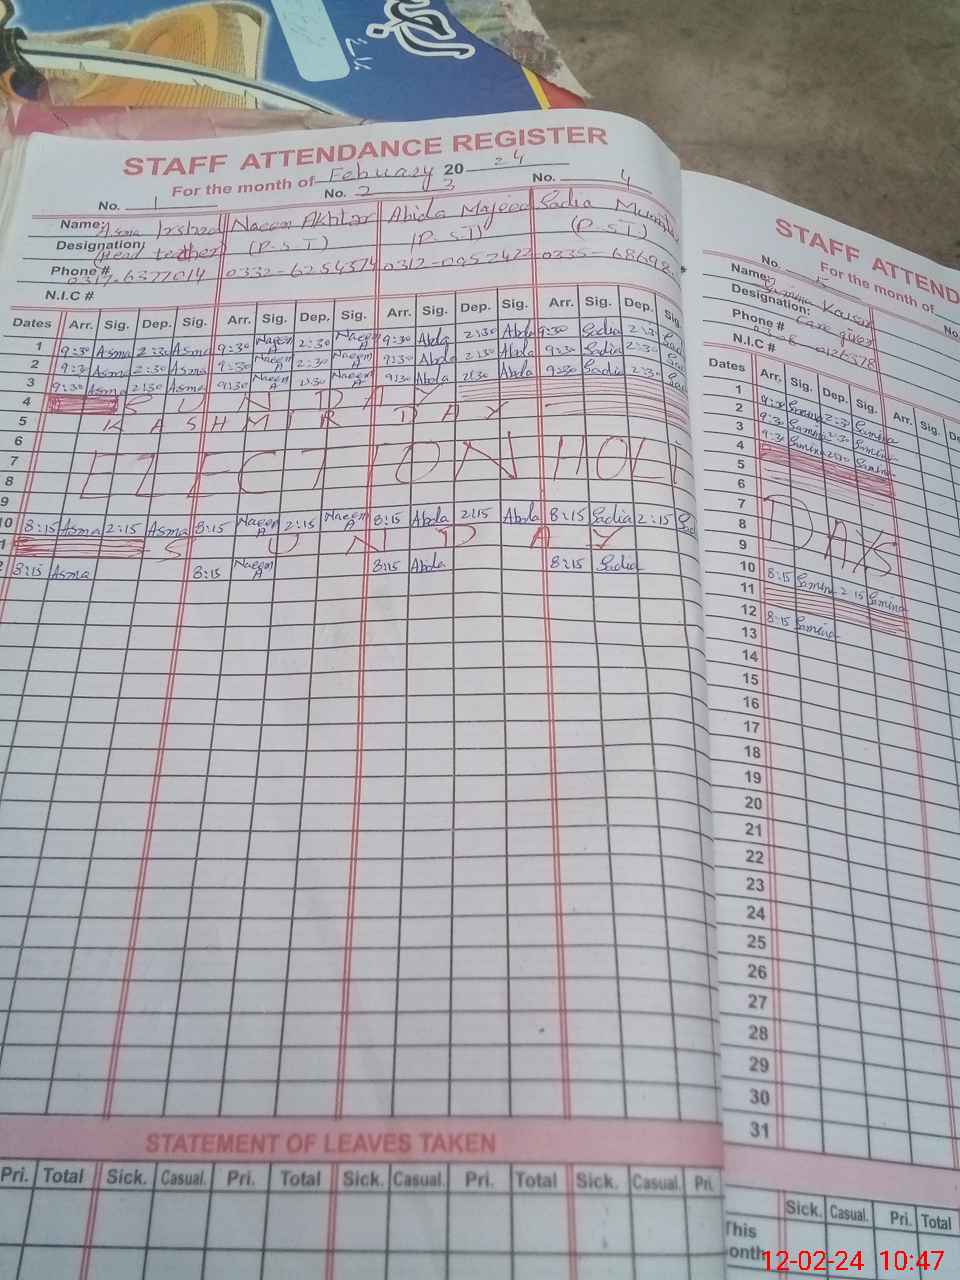 STAFF ATTENDANCE REGISTER
For the month of Febuary 20 24
No. 1 No. 2 3 No. 4
Name: Asma Irshad Naeem Akhtar Abida Majeed Sadia
Designation: Head teacher (P.S.T) (P.S.T) (P.S.T)
Phone # 0317-6377014 0332-6254374 0335-
N.I.C #
Dates Arr. Sig. Dep. Sig. Arr. Sig. Dep. Sig. Arr. Sig. Dep. Sig. Arr. Sig. Dep. Sig.
1 9:30 Asma 2:30 Asma 9:30 Naeem A 2:30 Naeem A 9:30 Abda 2:30 Abda 9:30 Sadia 2:30
2 9:30 Asma 2:30 Asma 9:30 Naeem A 2:30 Naeem A 9:30 Abda 2:30 Abda 9:30 Sadia 2:30
3 9:30 Asma 2:30 Asma 9:30 Naeem A 2:30 Naeem A 9:30 Abda 2:30 Abda 9:30 Sadia 2:30
4 SUNDAY
5 KASHMIR DAY
6
7 ELECTION HOLI
8
9
10 8:15 Asma 2:15 Asma 8:15 Naeem A 2:15 Naeem A 8:15 Abda 2:15 Abda 8:15 Sadia 2:15 Sad
1 SUNDAY
2 8:15 Asma 8:15 Naeem A 8:15 Abda 8:15 Sadia
STATEMENT OF LEAVES TAKEN
Pri. Total Sick. Casual. Pri. Total Sick. Casual. Pri. Total Sick. Casual. Pri.
STAFF ATTEND
For the month of
No. 5 No.
Name: Samina Kausar
Designation: Care giver
Phone #
N.I.C #
Dates Arr. Sig. Dep. Sig. Arr. Sig. De
1 9:30 Samina 2:30 Samina
2 9:30 Samina 2:30 Samina
3 9:30 Samina 2:30 Samina
4
5
6
7 DAYS
8
9
10 8:15 Samina 2:15 Samina
11
12 8:15 Samina
13
14
15
16
17
18
19
20
21
22
23
24
25
26
27
28
29
30
31
Sick. Casual. Pri. Total
This
onth
12-02-24 10:47